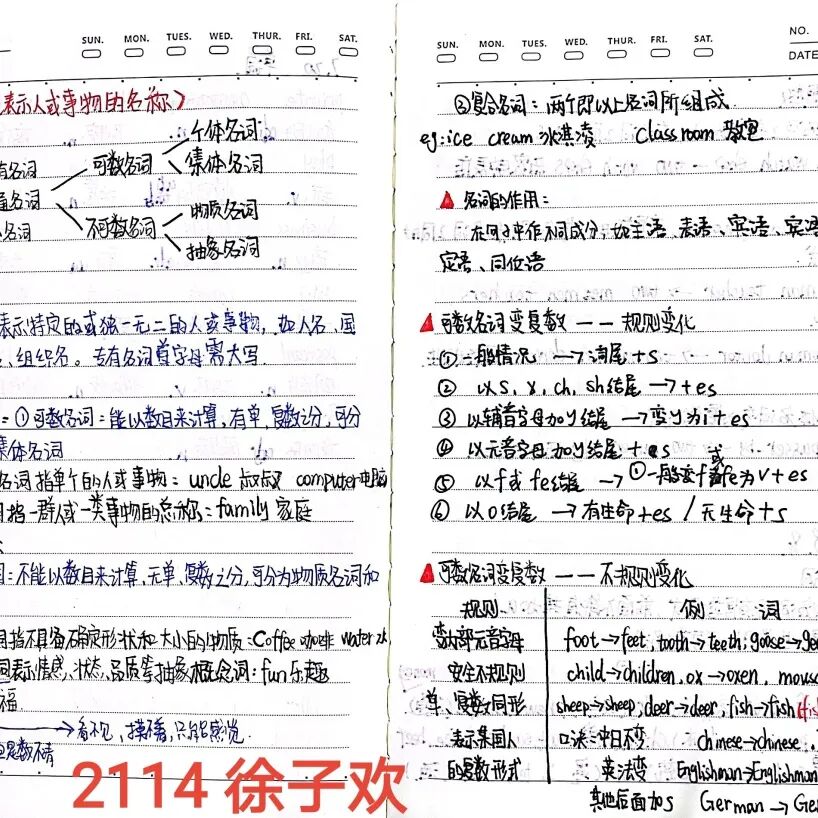 SUN. MON. TUES. WED. THUR. FRI. SAT.
表示人或事物的名称)
个体名词
可数名词
集体名词
有名词
通名词
物质名词
名词
不可数名词
抽象名词
表示特定的或独一无二的人或事物, 如人名、国
、组织名。专有名词首字母需大写
= ①可数名词: 能以数目来计算, 有单、复数之分, 可分
集体名词
名词指单个的人或事物: uncle 叔叔 computer电脑
指一群人或一类事物的总称: family 家庭
词: 不能以数目来计算, 无单、复数之分, 可分为物质名词和
词指不具备确定形状和大小的物质: Coffee 咖啡 water 水
词表示情感, 状态, 品质等抽象概念词: fun 乐趣
福
→看不见、摸不着, 只能感觉
数不清
2114 徐子欢
SUN. MON. TUES. WED. THUR. FRI. SAT.
NO.
DATE
③复合名词: 两个即以上名词所组成
eg: ice cream 冰淇凌 Classroom 教室
名词的作用:
在句子中作不同成分, 如主语、表语、宾语、宾
定语、同位语
可数名词变复数 —— 规则变化
① 一般情况 → 词尾+s
② 以s, x, ch, sh结尾 → +es
③ 以辅音字母加y结尾 → 变y为i+es
④ 以元音字母加y结尾 +s
⑤ 以f或fe结尾 → ①一般变f或fe为v+es
⑥ 以o结尾 → 有生命+es / 无生命+s
可数名词变复数 —— 不规则变化
规则 例 词
变内部元音字母 foot→feet, tooth→teeth; goose→ge
安全不规则 child→children, ox→oxen, mous
单、复数同形 sheep→sheep, deer→deer, fish→fish(fis
表示某国人 口诀: 中日不变 Chinese→chinese
的复数形式 英法变 Englishman→Englishmen
其他后面加s German → Ger